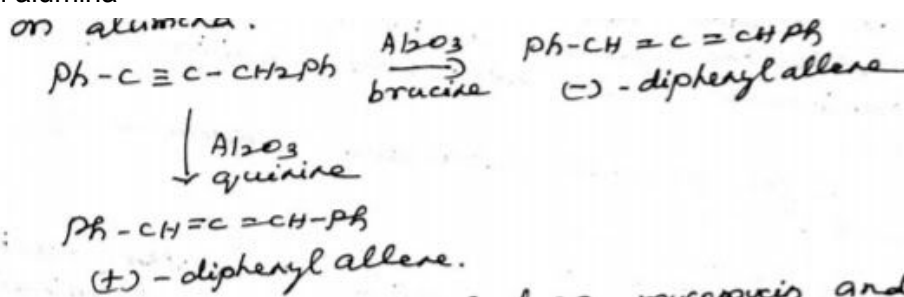 on alumina.
Ph-C≡C-CH2Ph Al2O3 brucine Ph-CH=C=CHPh
(-)-diphenyl allene
Al2O3
quinine
Ph-CH=C=CH-Ph
(±)-diphenyl allene.
and